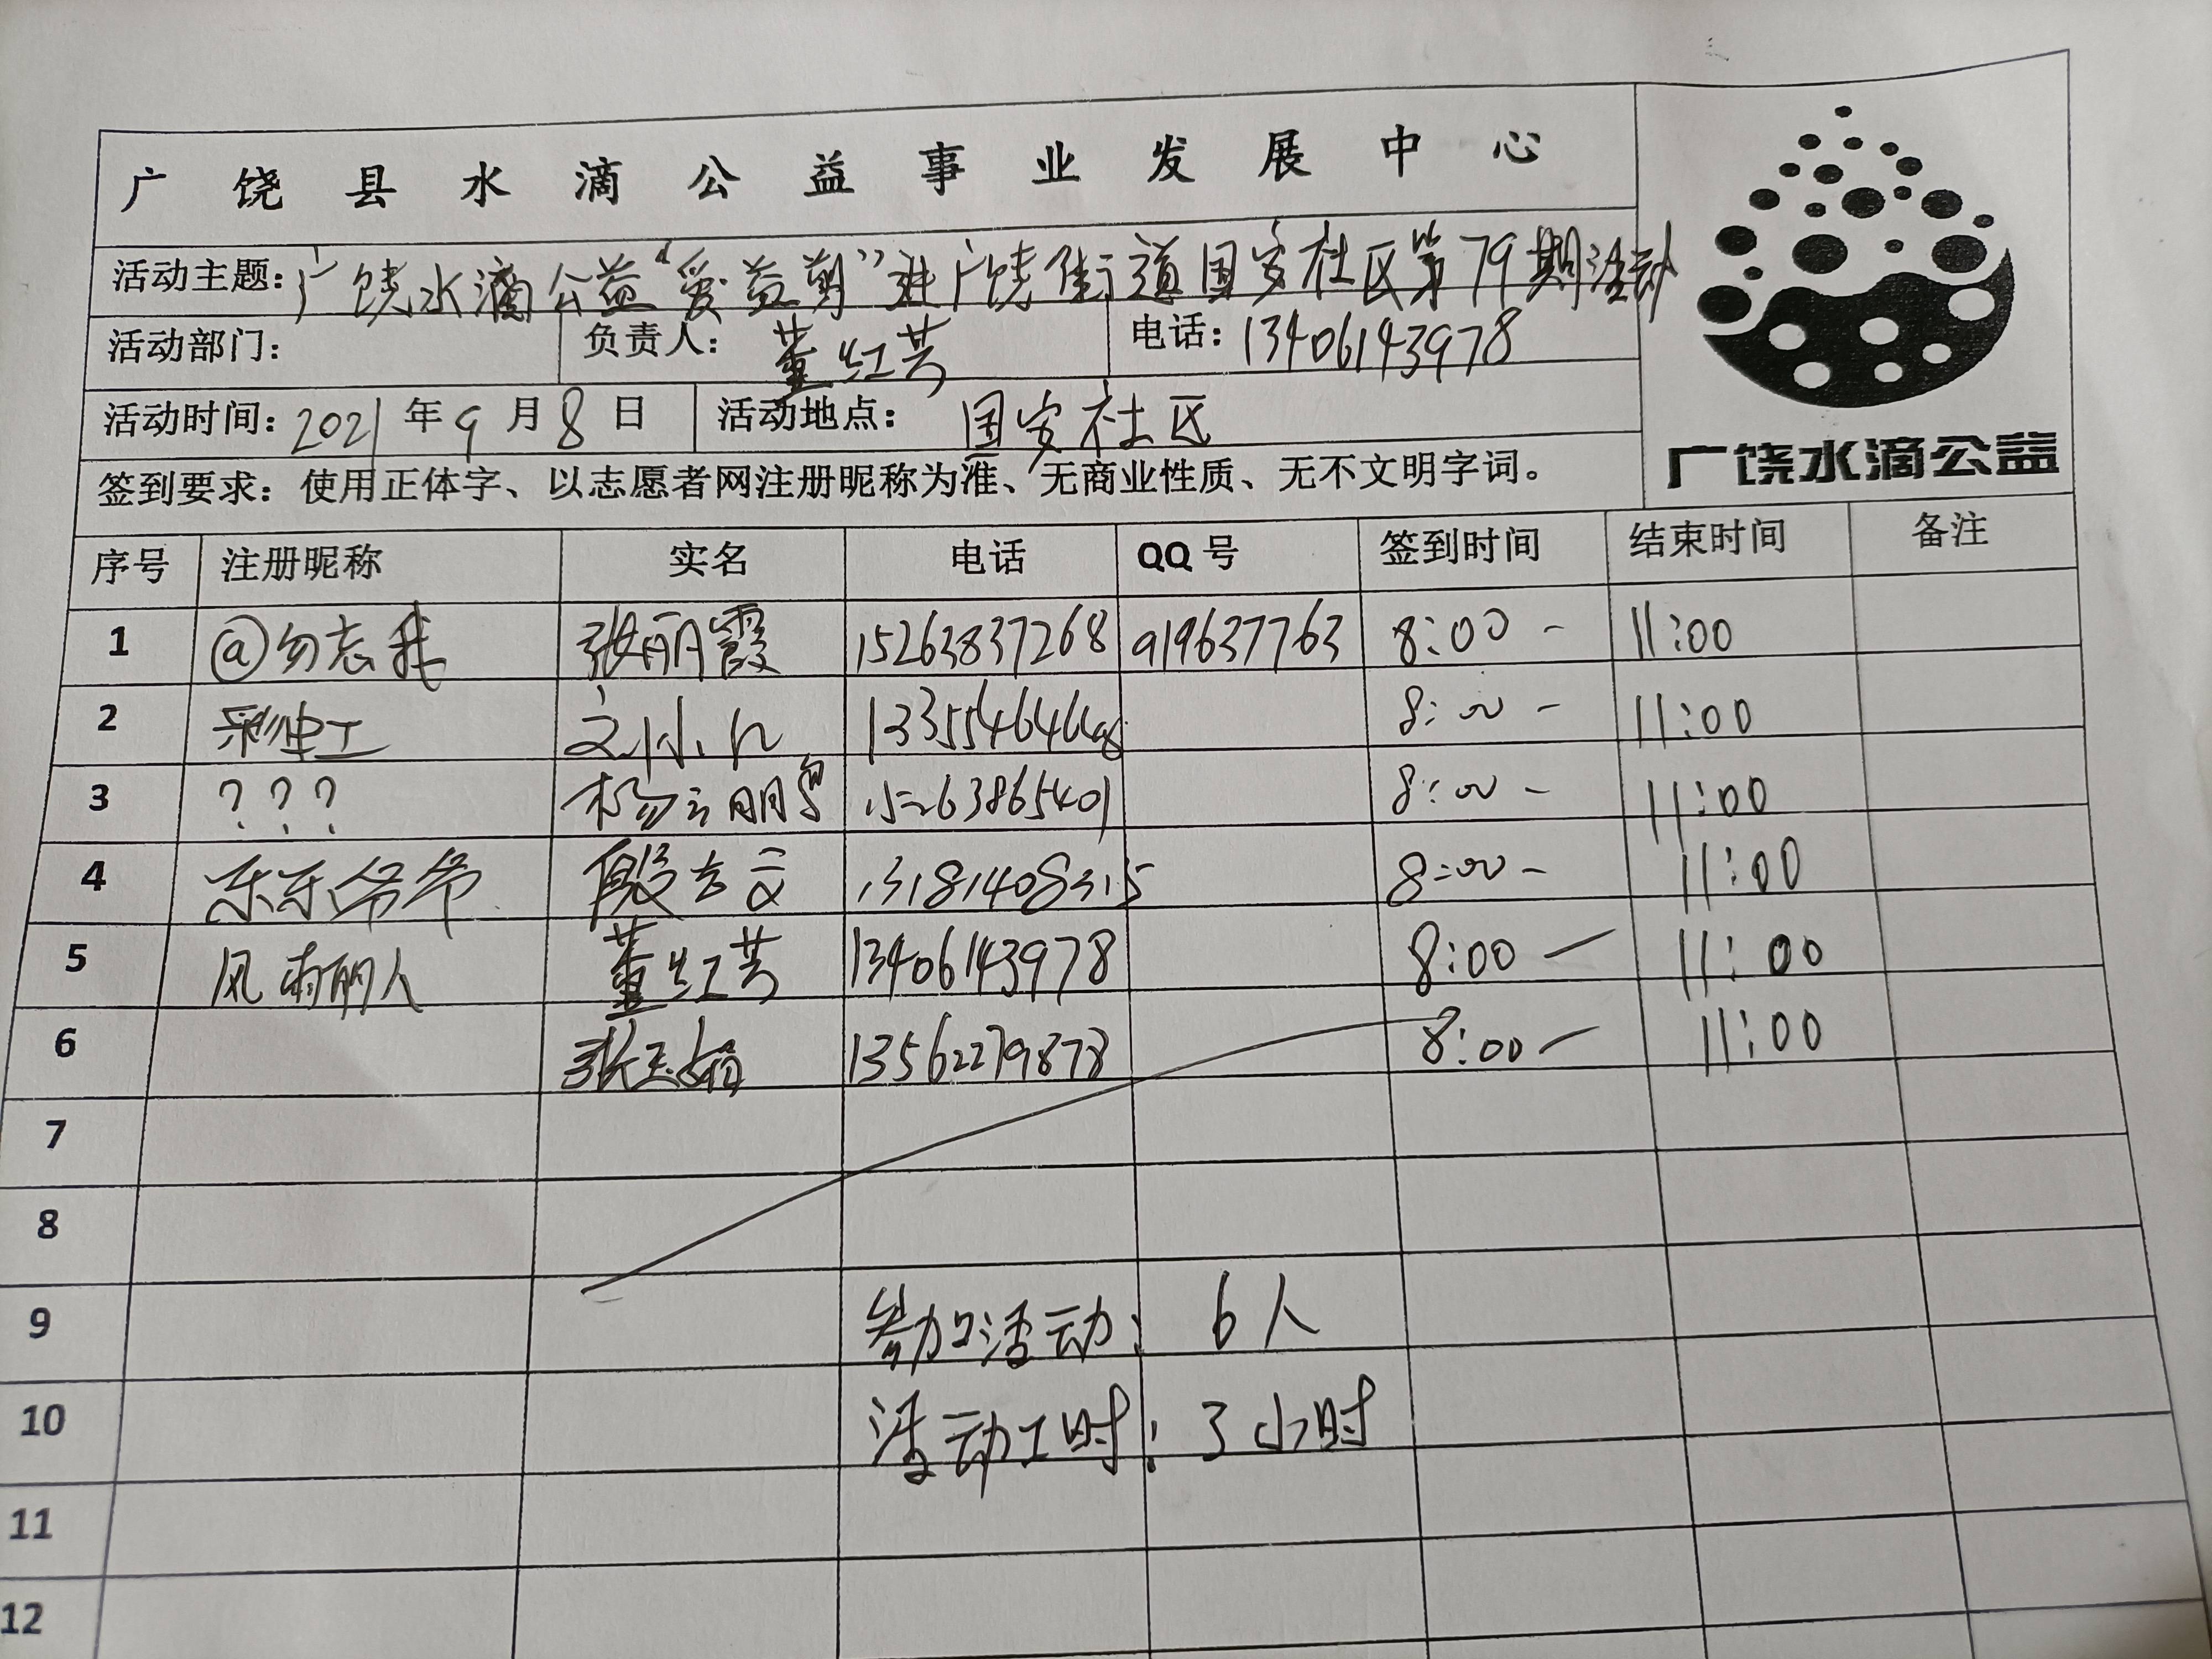 广饶县水滴公益事业发展中心
活动主题：广饶水滴公益“爱益剪”进广饶街道国安社区第79期活动
活动部门： 负责人：董红芸 电话：13406143978
活动时间：2021年9月8日 活动地点：国安社区
签到要求：使用正体字、以志愿者网注册昵称为准、无商业性质、无不文明字词。
广饶水滴公益
序号 注册昵称 实名 电话 QQ号 签到时间 结束时间 备注
1 @勿忘我 张丽霞 15263837268 919637763 8:00 - 11:00
2 彩虹 8:00 - 11:00
3 ？？？ 15263865401 8:00 - 11:00
4 东东爷爷 13181408315 8:00 - 11:00
5 风雨丽人 董红芸 13406143978 8:00 - 11:00
6 张玉娟 13562279878 8:00 - 11:00
7
8
9 参加活动：6人
10 活动工时：3小时
11
12